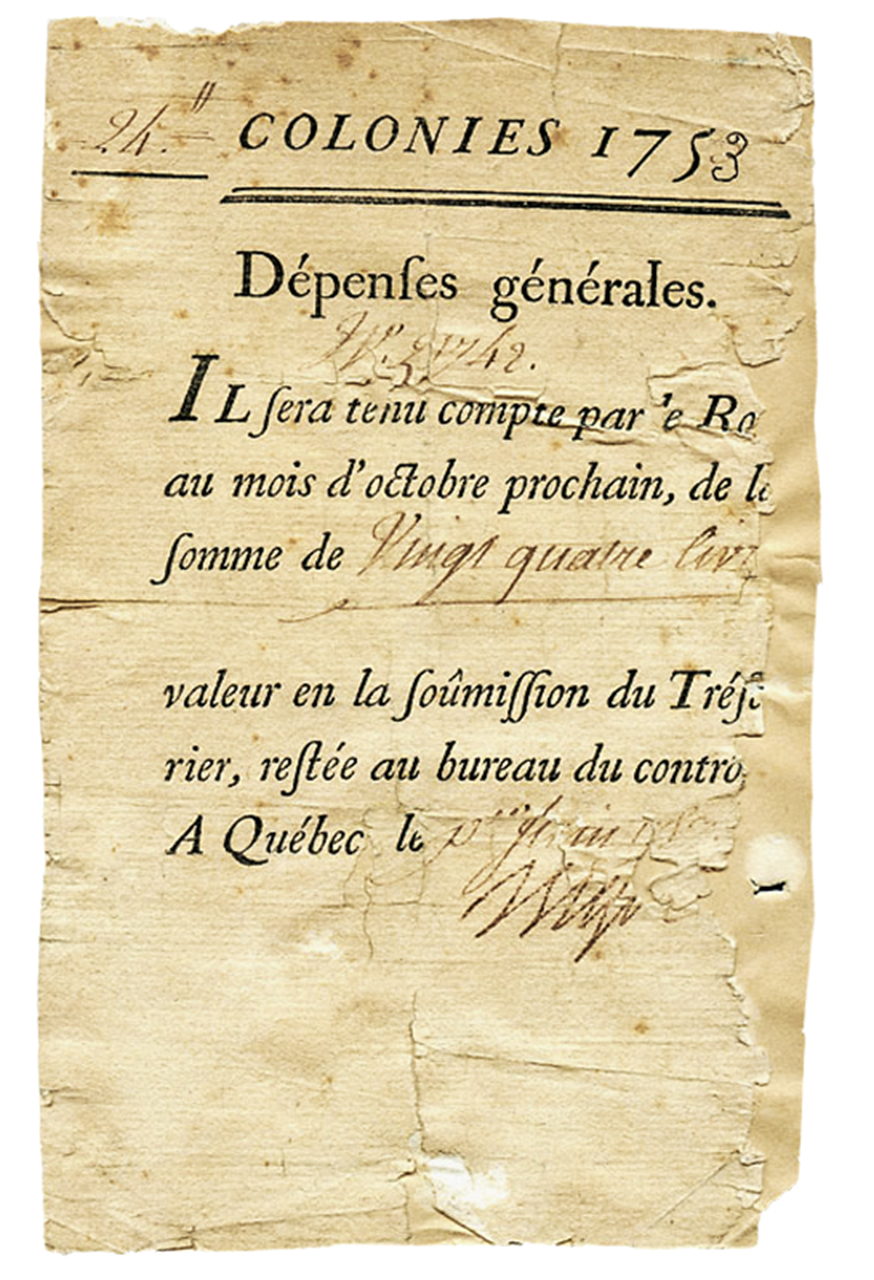 24.ᴴ COLONIES 1753
Dépenſes générales.
N.º 2742.
IL ſera tenu compte par 'e Ro
au mois d'octobre prochain, de l
ſomme de Vingt quatre livr
valeur en la ſoûmiſſion du Tréſ
rier, reſtée au bureau du contro
A Québec le p.er Juin